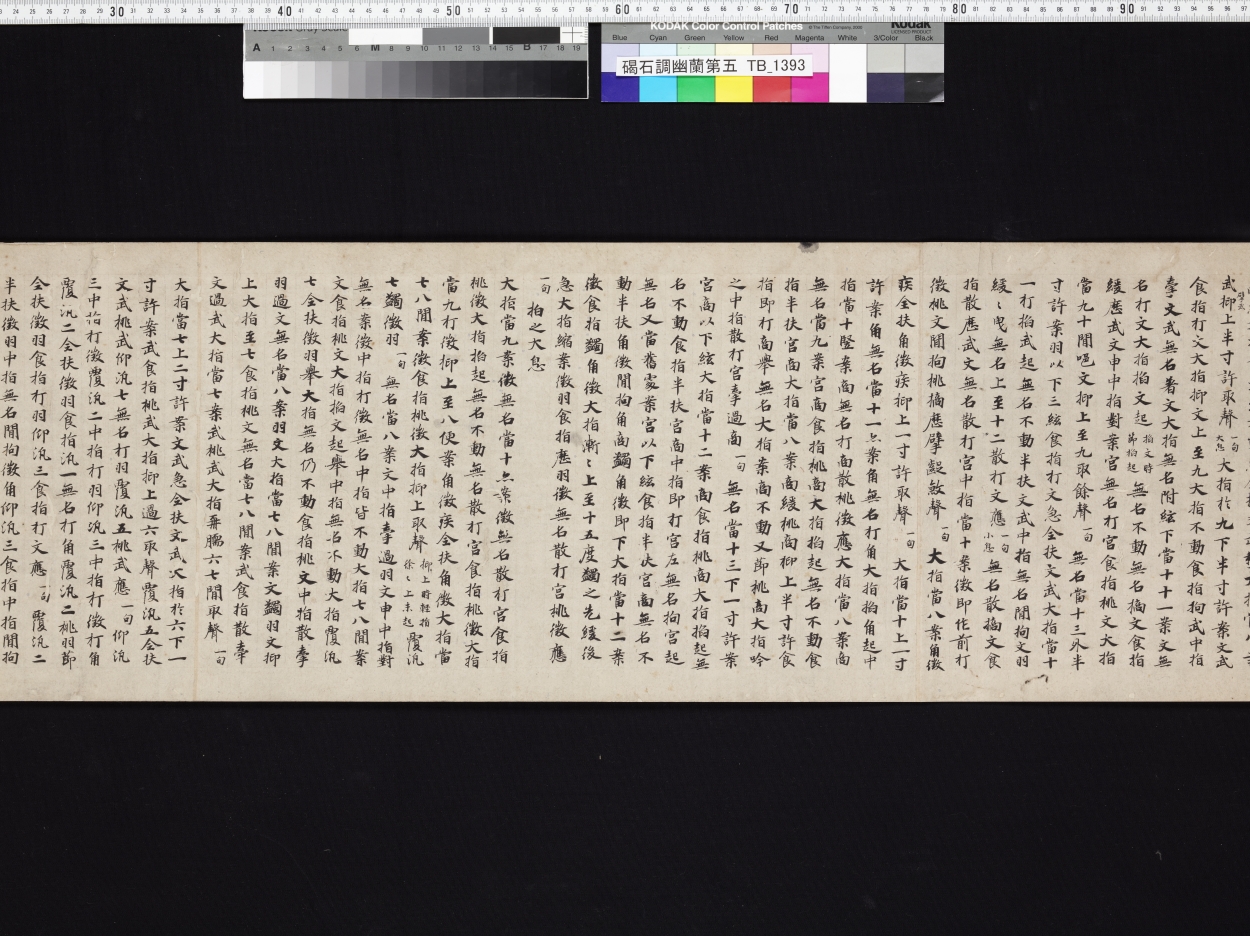 KODAK Color Control Patches
Blue Cyan Green Yellow Red Magenta White 3/Color Black
碣石調幽蘭第五 TB_1393
武抑上半寸許取聲一句大息大指於九下半寸許案文武
食指打文大指抑文上至九大指不動食指拘武中指
牽文武無名著文大指無名附絃下當十十一案文無
名打文大指掐文起無名不動無名擿文食指
緩應武文申中指對案宮無名打宮食指桃文大指
當九十間吟文抑上至九取餘聲一句無名當十三外半
寸許案羽以下三絃食指打文急全扶文武大指當十
一打掐武起無名不動半扶文武中指無名間拘文羽
緩〻曳無名上至十二散打文應一句小息無名散擿文食
指散應武文無名散打宮中指當十案徵即作前打
徵桃文間拘桃擿應擘一句大指當八案角徵
疾全扶角徵疾抑上一寸許取聲一句大指當十上一寸
許案角無名當十一案角無名打角大指掐角起中
指當十堅案商無名打商散桃徵應大指當八案商
無名當九案宮商食指桃商大指掐起無名不動食
指半扶宮商大指當八案商緩桃商抑上半寸許食
指即打商舉無名大指案商不動又節桃商大指吟
之中指散打宮牽過商一句無名當十三下一寸許案
宮商以下絃大指當十二案商食指桃商大指掐起無
名不動食指半扶宮商中指即打宮無名拘宮起
無名又當舊處案宮以下絃食指半扶宮商無名不
動半扶角徵間拘角商蠲角徵即下大指當十二案
徵食指蠲角徵大指漸〻上至十五度蠲之先緩後
急大指縮案徵羽食指歷羽徵無名散打宮桃徵應
一句拍之大息
大指當九案徵無名當十案徵無名散打宮食指
桃徵大指掐起無名不動無名散打宮食指桃徵大指
當九打徵抑上至八使案角徵疾全扶角徵大指當
七八間案徵食指桃徵大指抑上取聲抑上時輕指徐〻上未起覆汎
七蠲徵羽一句無名當八案文中指牽過羽文申中指對
無名案徵中指打徵無名中指皆不動大指七八間案
文食指桃文大指掐文起舉中指無名不動大指覆汎
七全扶徵羽舉大指無名仍不動食指桃文中指散牽
羽過文無名當八案羽文大指當七八間案文蠲羽文抑
上大指至七食指桃文無名當七八間案武食指散牽
文過武大指當七案武桃武大指六七間取聲一句
大指當七上二寸許案文武急全扶文武大指於六下一
寸許案武食指桃武大指抑上過六取聲覆汎五全扶
文武桃武仰汎七無名打羽覆汎五桃武應一句仰汎
三中指打徵覆汎二中指打羽仰汎三中指打徵打角
覆汎二全扶徵羽食指汎一無名打角覆汎二桃羽節
全扶徵羽食指打羽仰汎三食指打文應一句覆汎二
半扶徵羽中指無名間拘徵角仰汎三食指中指間拘